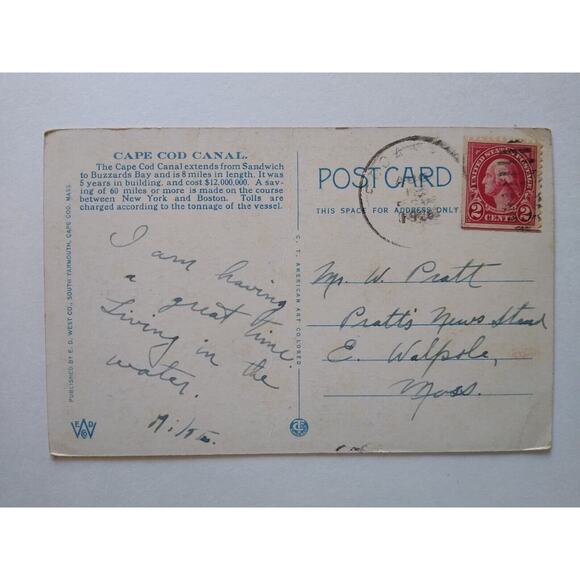 CAPE COD CANAL.
The Cape Cod Canal extends from Sandwich
to Buzzards Bay and is 8 miles in length. It was
5 years in building, and cost $12,000,000. A sav-
ing of 60 miles or more is made on the course
between New York and Boston. Tolls are
charged according to the tonnage of the vessel.
I am having
a great time.
Living in the
water.
Milton.
PUBLISHED BY E. D. WEST CO., SOUTH YARMOUTH, CAPE COD, MASS.
E D
W
Co
C. T. AMERICAN ART COLORED
POST CARD
THIS SPACE FOR ADDRESS ONLY.
UNITED STATES POSTAGE
2 CENTS 2
Mr. W. Pratt
Pratt's News Stand
E. Walpole,
Mass.